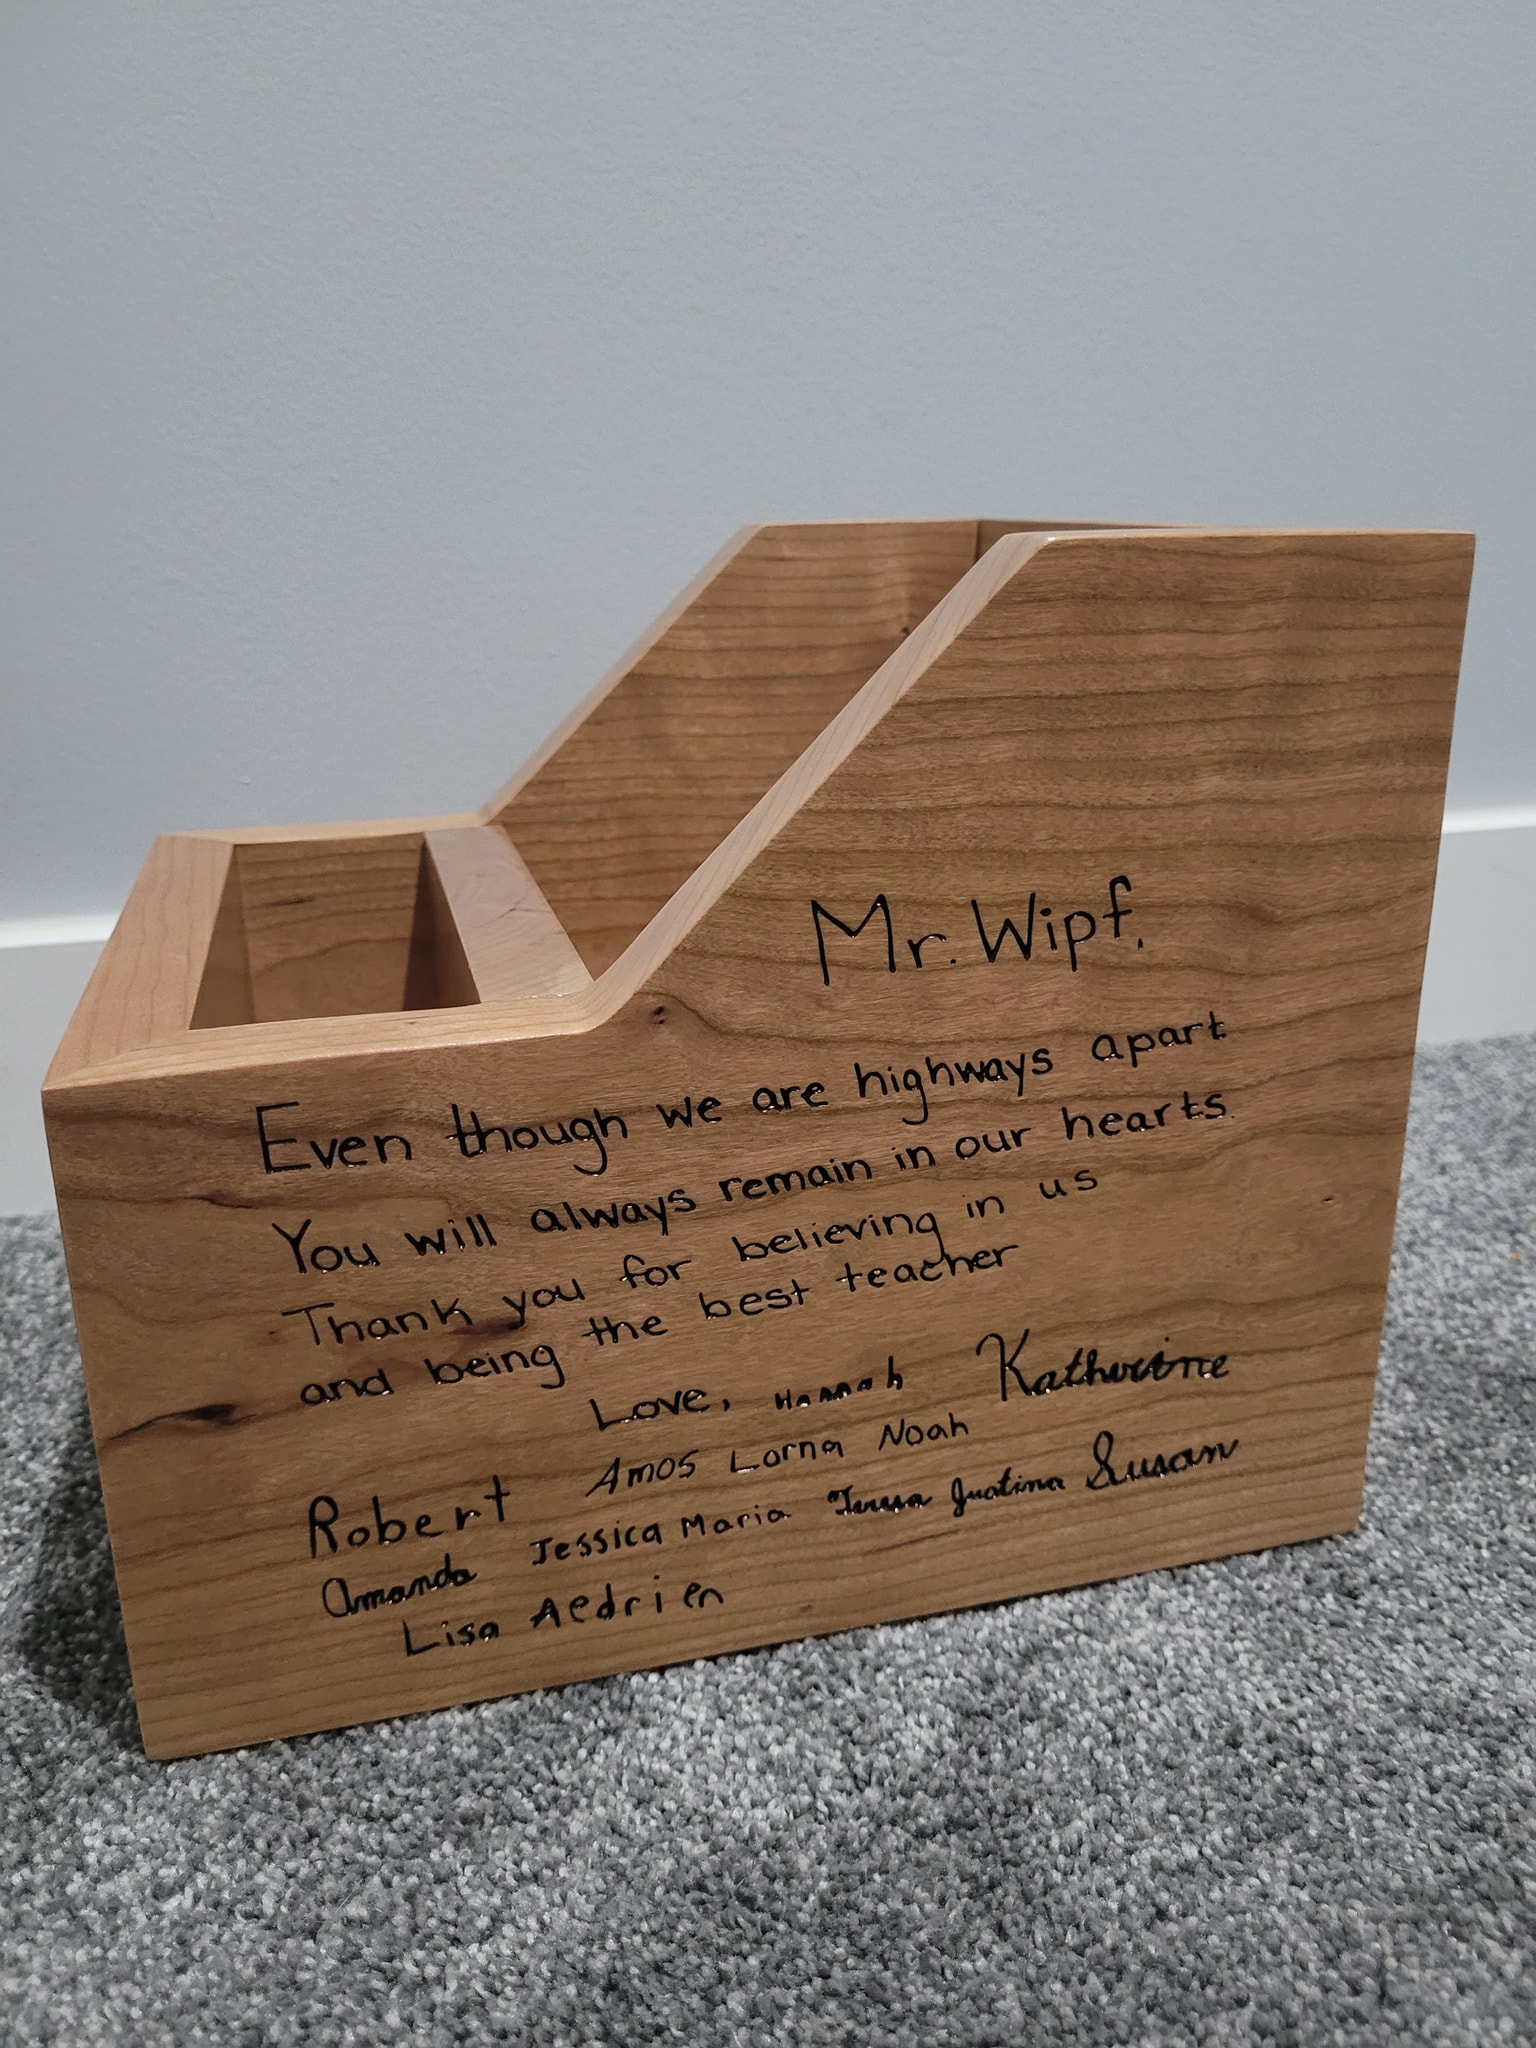 Mr. Wipf,
Even though we are highways apart
You will always remain in our hearts.
Thank you for believing in us
and being the best teacher
Love, Hannah Katherine
Robert Amos Lorna Noah
Amanda Jessica Maria Teresa Justina Susan
Lisa Aedrien